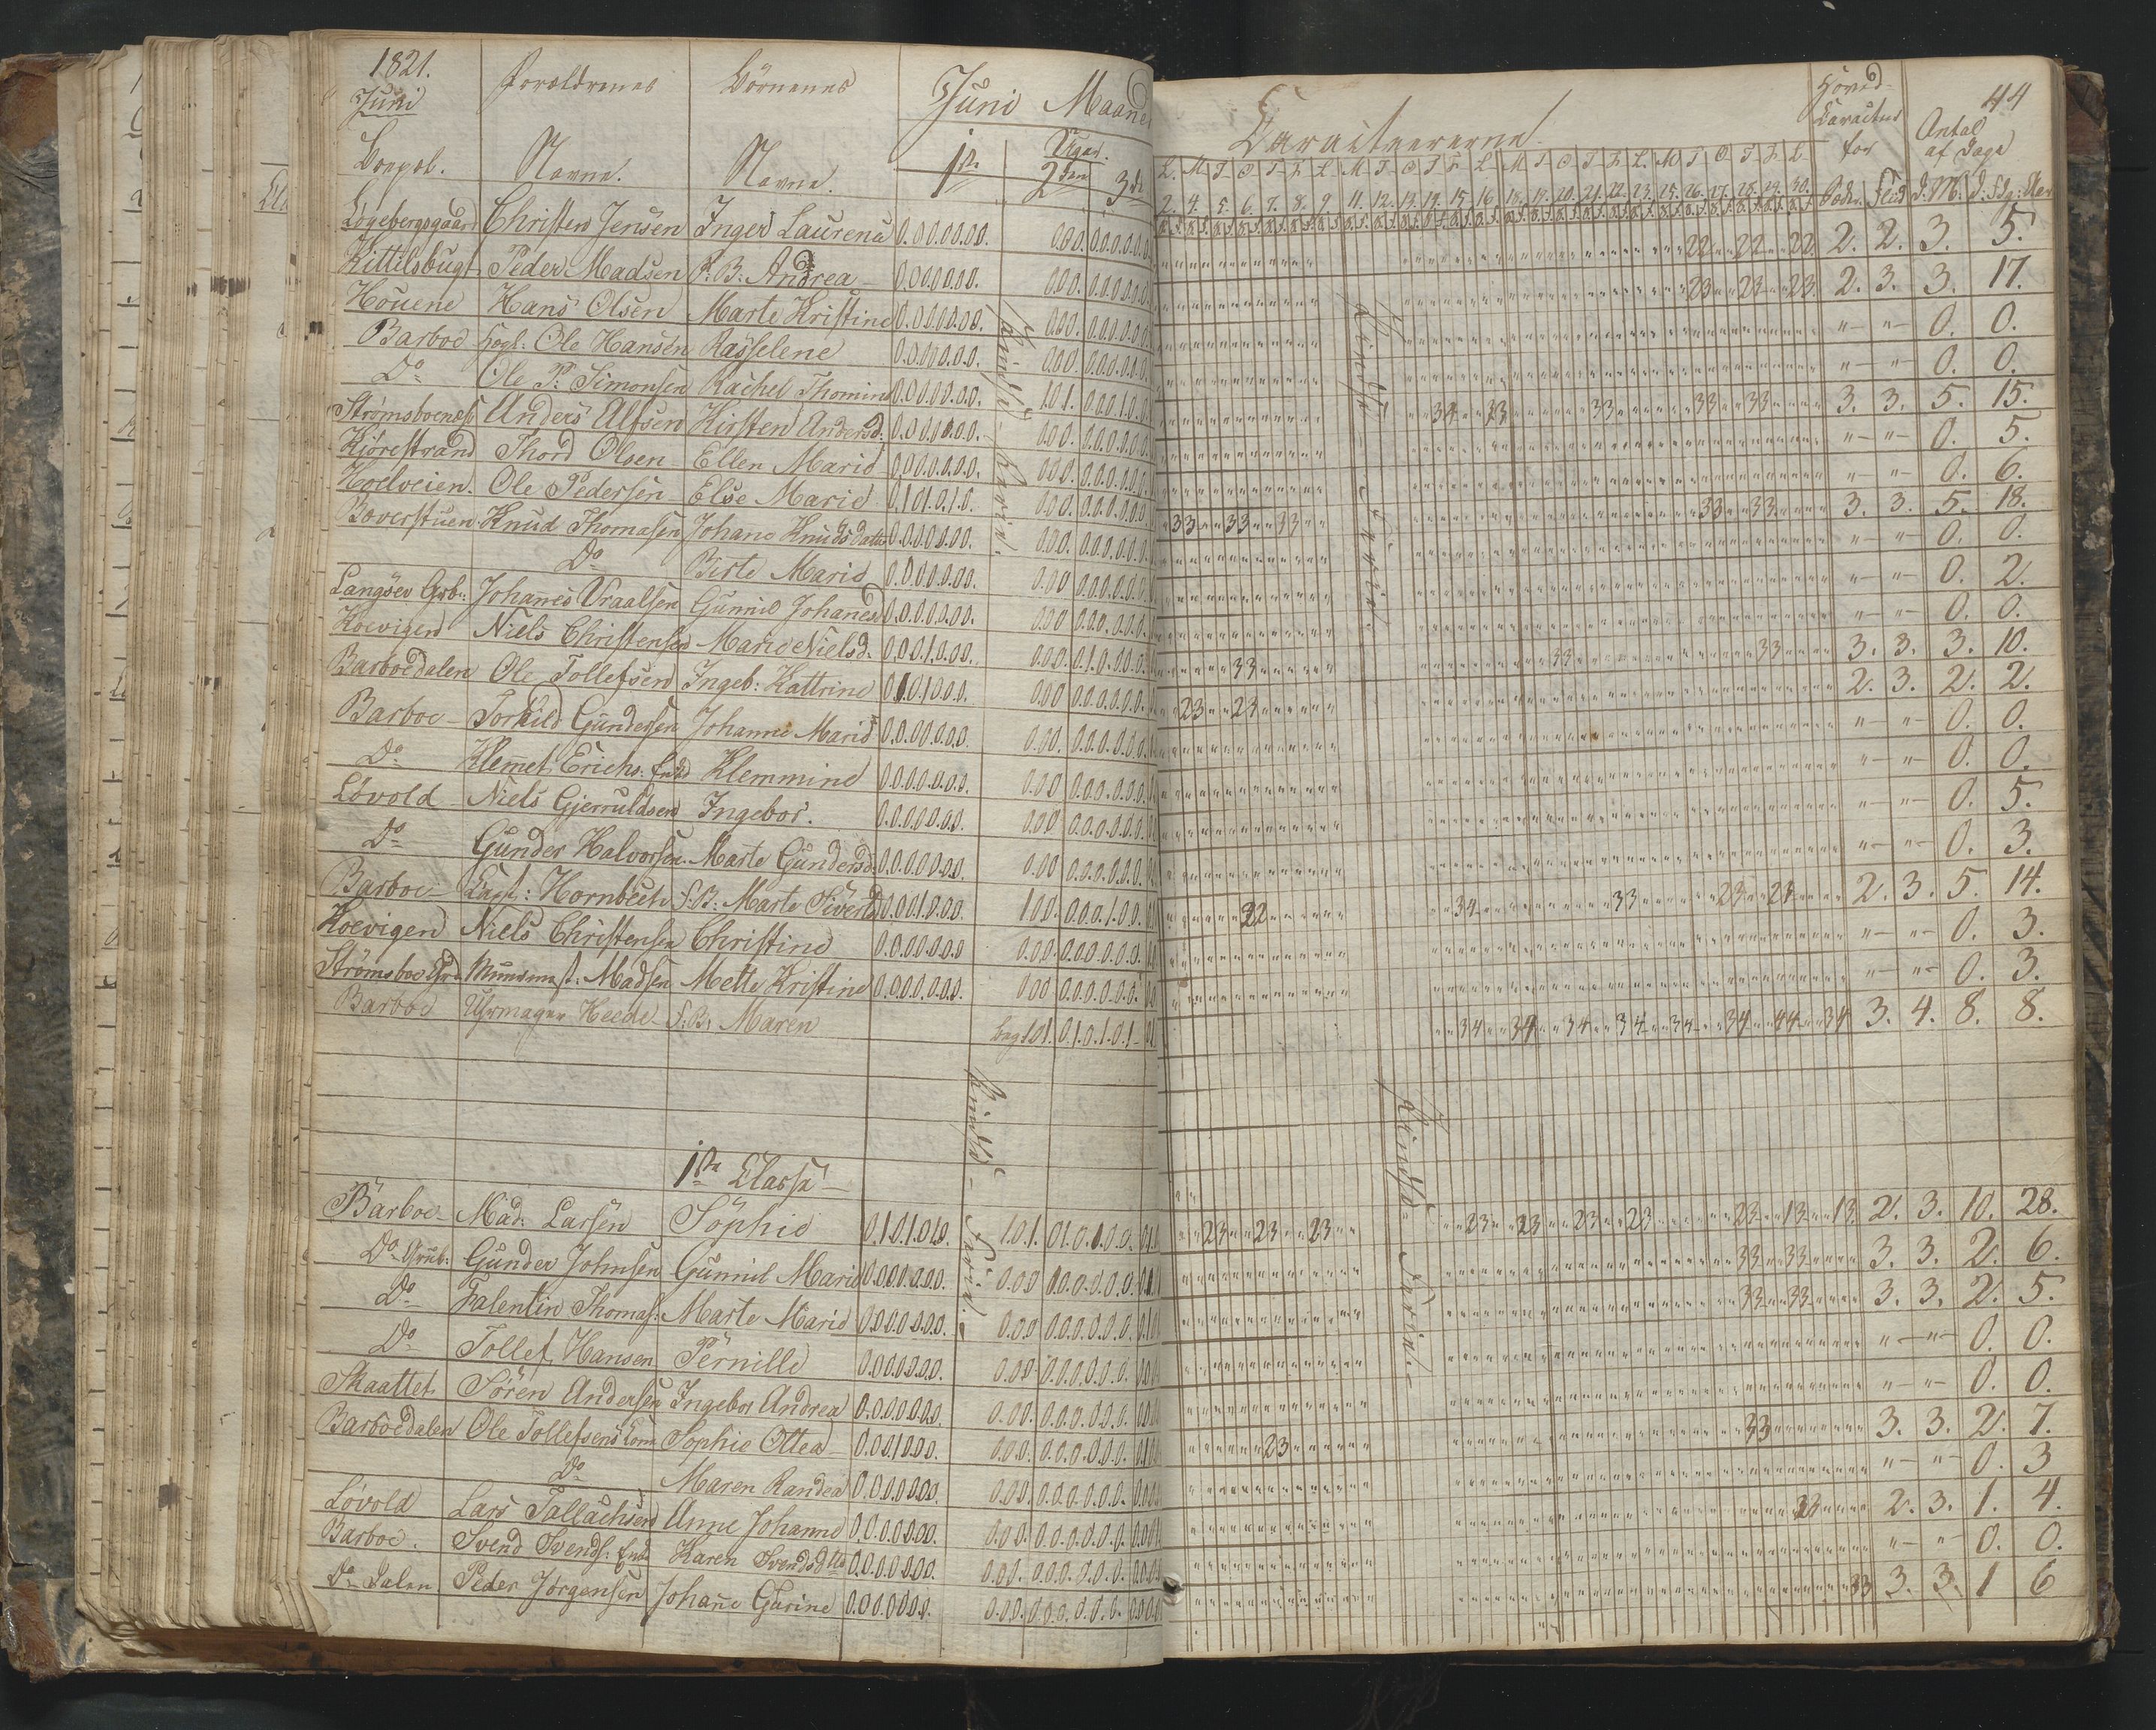 1821.
Juni
Forældrenes
Börnenes
Juni Maaned
Caractererne
Hoved-
Caracteer
for
Antal
af Dage
44
Boepæl.
Navne.
Navne.
1ste
Uger.
2den
3de
L. M. T. O. T. F. L. M. T. O. T. F. L. M. T. O. T. F. L. M. T. O. T. F. L.
2. 4. 5. 6. 7. 8. 9. 11. 12. 13. 14. 15. 16. 18. 19. 20. 21. 22. 23. 25. 26. 27. 28. 29. 30.
Christen Jensen Inger Laurena 0.0.0.0.0.0. 0.0.0. 0.0.0.0.0.0. 22 22 22 2. 2. 3. 5.
Kittelsbugt Peder Madsen P. B. Andrea 0.0.0.0.0.0. 0.0.0. 0.0.0.0.0.0. 23 23 23 2. 3. 3. 17.
Houene Hans Olsen Marte Kristine 0.0.0.0.0.0. 0.0.0. 0.0.0.0.0.0. 0. 0.
Barboe Ole Hansen Rasselene 0.0.0.0.0.0. 0.0.0. 0.0.0.0.0.0. 0. 0.
Do Ole P. Simonsen Rachel Thomine 0.0.0.0.0.0. 1.0.1. 0.0.0.1.0.0. 34 23 33 33 33 3. 3. 5. 15.
Anders Alfsen Kirsten Andersd: 0.0.0.0.0.0. 0.0.0. 0.0.0.0.0.0. 0. 5.
Kjörestrand Thord Olsen Ellen Marie 0.0.0.0.0.0. 0.0.0. 0.0.0.0.0.0. 0. 6.
Hoelveien. Ole Pedersen Else Marie 0.1.0.1.0.1.0. 0.0.0. 0.0.0.0.0.0. 33 33 33 33 33 3. 3. 5. 18.
Boverstuen Knud Thomasen Johane Knudsdatter 0.0.0.0.0.0. 0.0.0. 0.0.0.0.0.0. 0. 0.
Do Birte Marie 0.0.0.0.0.0. 0.0.0 0.0.0.0.0.0. 0. 2.
Langsev Grb: Johanes Vraalsen Gunnild Johanesd 0.0.0.0.0.0. 0.0.0 0.0.0.0.0.0. 0. 0.
Koevigen Niels Christensen Marie Nielsd. 0.0.0.1.0.0. 0.0.0. 0.1.0.0.0.0. 33 33 33 3. 3. 3. 10.
Barboedalen Ole Tollefsen Ingeb: Kattrine 0.1.0.1.0.0. 0.0.0 0.0.0.0.0.0. 23 23 2. 3. 2. 2.
Barboe Torkild Gundersen Johanne Marie 0.0.0.0.0.0. 0.0.0. 0.0.0.0.0.0. 0. 0.
Do Klemet Erichs: Enke Klemmine 0.0.0.0.0.0. 0.0.0 0.0.0.0.0.0. 0. 0.
Lövold Niels Gjerruldsen Ingebor. 0.0.0.0.0.0. 0.0.0 0.0.0.0.0.0. 0. 5.
Do Gunder Halvorsen Marte Gundersd: 0.0.0.0.0.0. 0.0.0 0.0.0.0.0.0. 0. 3.
Barboe Capt: Hornbech P. B: Marte Siverts 0.0.0.1.0.0. 1.0.0. 0.0.0.1.0.0. 32 34 33 23 24 2. 3. 5. 14.
Koevigen Niels Christensen Christine 0.0.0.0.0.0 0.0.0 0.0.0.0.0.0. 0. 3.
Strömsboe Madsen Mette Kristine 0.0.0.0.0.0. 0.0.0 0.0.0.0.0.0. 0. 3.
Barboe Uhrmager Heede P. B: Maren 1.0.1. 0.1.0.1.0.1 34 34 34 34 34 34 44 34 3. 4. 8. 8.
Pindse-Ferie.
Pindse-Ferie.
1ste Classe
Barboe Mad: Larsen Sophie 0.1.0.1.0.1.0. 1.0.1. 0.1.0.1.0.0. 23 23 23 23 23 23 23 23 13 13 2. 3. 10. 28.
Do Grub: Gunder Johnsen Gunnil Marie 0.0.0.0.0.0. 0.0.0 0.0.0.0.0.0. 33 33 3. 3. 2. 6.
Do Falentin Thomas: Marte Marie 0.0.0.0.0.0. 0.0.0 0.0.0.0.0.0. 33 33 3. 3. 2. 5.
Do Tollef Hansen Pernille 0.0.0.0.0.0. 0.0.0 0.0.0.0.0.0. 0. 0.
Skaattet Sören Andersen Ingebor Andrea 0.0.0.0.0.0. 0.0.0. 0.0.0.0.0.0. 0. 0.
Barboedalen Ole Tollefsens Sophie Ottea 0.0.0.1.0.0. 0.0.0. 0.0.0.0.0.0. 23 33 3. 3. 2. 7.
Do Maren Randea 0.0.0.0.0.0. 0.0.0. 0.0.0.0.0.0. 0. 3
Lövold Lars Tallachsen Anne Johanne 0.0.0.0.0.0. 0.0.0. 0.0.0.0.0.0. 2. 3. 1. 4.
Barboe. Svend Svends: Enke Karen Svendsdtter 0.0.0.0.0.0. 0.0.0. 0.0.0.0.0.0. 0. 0.
Do Dalen Peder Jörgensen Johane Garine 0.0.0.0.0.0. 0.0.0. 0.0.0.0.0.0. 33 3. 3. 1 6
Pindse-Ferie.
Pindse-Ferie.